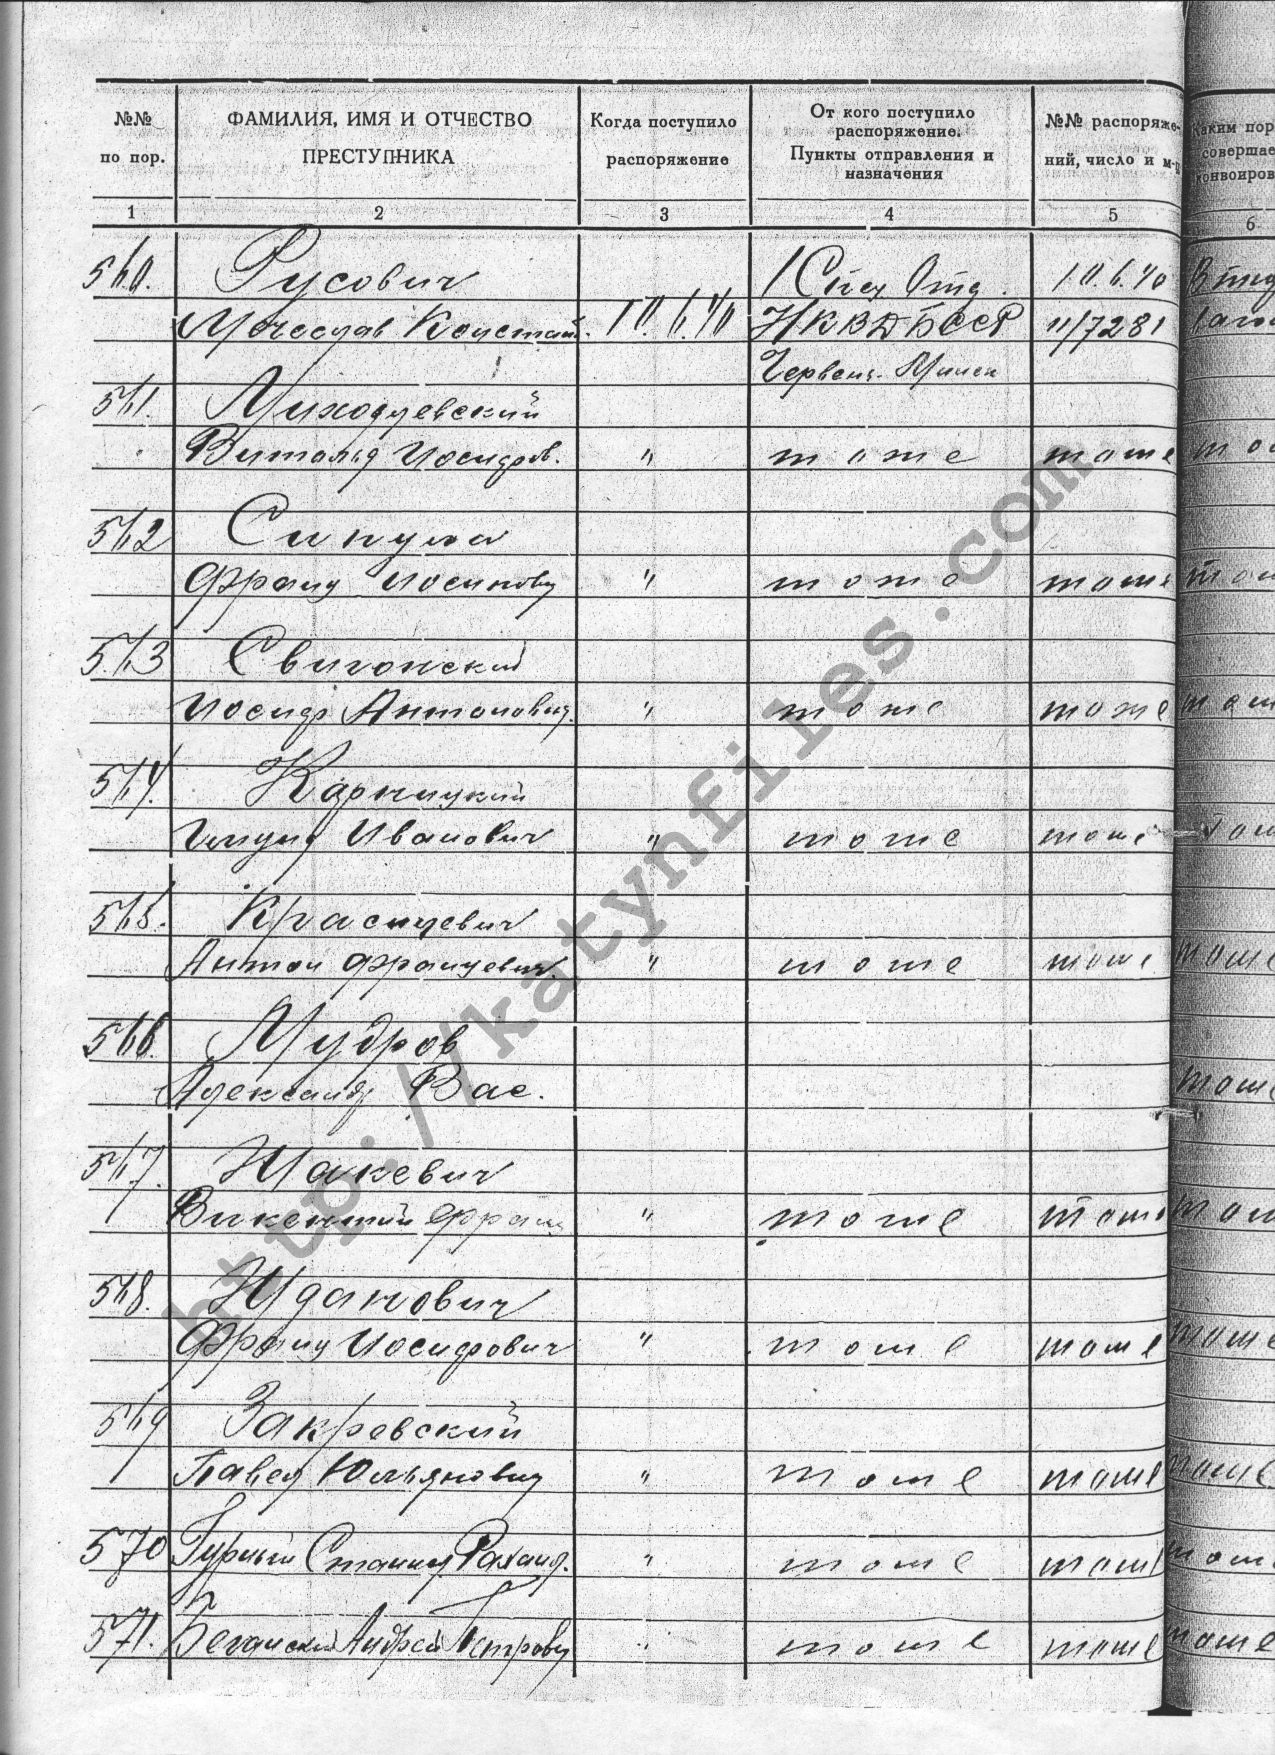 №№ по пор.
ФАМИЛИЯ, ИМЯ И ОТЧЕСТВО ПРЕСТУПНИКА
Когда поступило распоряжение
От кого поступило распоряжение. Пункты отправления и назначения
№№ распоряже- ний, число и м-ц
Каким пор
совершае
конвоиров
1 2 3 4 5 6
560. Русович 1 Спец Отд. 10.6.40
Мечеслав Констан. 10.6.40 НКВД БССР 11/7281
Червень-Минск
561. Миходлевский
Витольд Иосифов. " тоже тоже
562 Сикула
Франц Иосифович " тоже тоже
563 Свигонский
Иосиф Антонович " тоже тоже
564. Карницкий
Иванович " тоже тоже
565. Красицевич
Антон Францевич. " тоже тоже
566. Мудров
Александр Вас. тоже
567. Жакевич
Викентий Франц " тоже тоже
568. Жданович
Франц Иосифович " тоже тоже
569 Закревский
Павел Юльянович " тоже тоже тоже
570 Гурный Станисл. " тоже тоже
571. Беганский Андрей Петрович " тоже тоже тоже
http://katynfiles.com